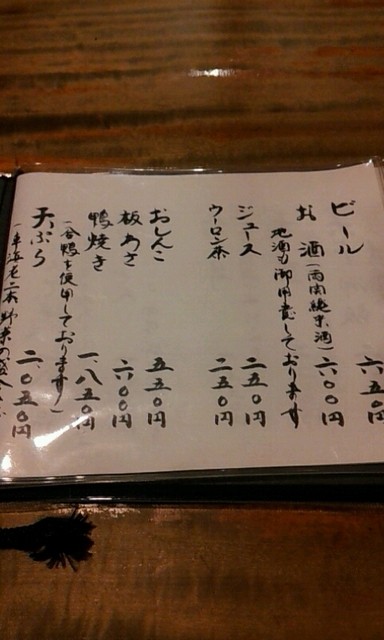 ビール 六五〇円
お酒（両関純米酒） 六〇〇円
地酒も御用意しております
ジュース 二五〇円
ウーロン茶 二五〇円
おしんこ 五五〇円
板わさ 六〇〇円
鴨焼き 一、八五〇円
（合鴨を使用しております）
天ぷら 二、〇五〇円
（車海老二本野菜の盛合